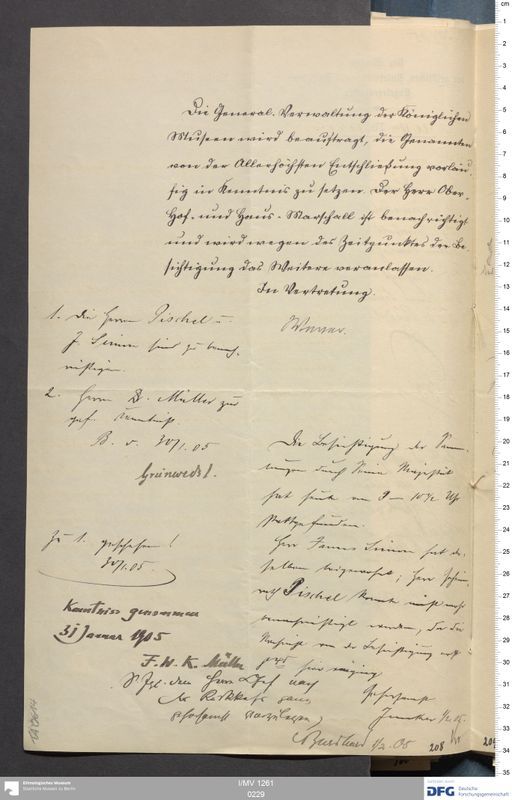 Die General-Verwaltung der Königlichen
Museen wird beauftragt, die Genannten
von der Allerhöchsten Entschließung vorläu-
fig in Kenntnis zu setzen. Der Herr Ober-
Hof- und Haus-Marschall ist benachrichtigt
und wird wegen des Zeitpunktes der Be-
sichtigung das Weitere veranlassen.
In Vertretung.
1. die Herren Pischel u.
J. Simon sind zu benach-
richtigen.
2. Herrn Dr. Müller zur
gef. Kenntniß.
B. d. 30/1. 05
Grünwedel.
Zu 1. geschehen!
30/1. 05.
Kenntniss genommen
31 Januar 1905
F. W. K. Müller
Die Besichtigung der Samm-
lungen durch Seine Majestät
hat heute von 9 – 10½ Uhr
stattgefunden.
Herr James Simon hat der-
selben beigewohnt; Herr Geheim-
rath Pischel konnte nicht mehr
benachrichtigt werden, da die
Nachricht von der Besichtigung erst
hier einging
Herrn Chef nach
der Rückkehr ganz
gehorsamst vorzulegen
1/2. 05
208
I/MV 1261
0229
Ethnologisches Museum
Staatliche Museen zu Berlin
DFG
Deutsche
Forschungsgemeinschaft